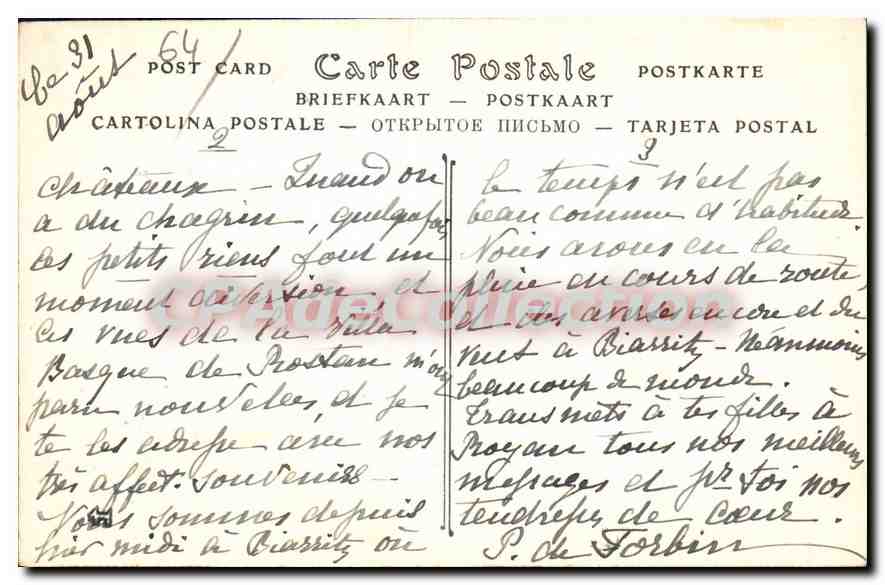 Le 31
août
64
POST CARD Carte Postale POSTKARTE
BRIEFKAART — POSTKAART
CARTOLINA POSTALE — ОТКРЫТОЕ ПИСЬМО — TARJETA POSTAL
2
châteaux — Quand on
a du chagrin, quelquefois
ces petits riens font un
moment diversion et
ces vues de la villa
Basque de Rostan m'ont
paru nouvelles, et je
te les adresse avec nos
très affect. souvenirs —
Nous sommes depuis
hier midi à Biarritz où
3
le temps n'est pas
beau comme d'habitude.
Nous avons eu la
pluie en cours de route,
et des averses encore et du
vent à Biarritz — Néanmoins
beaucoup de monde.
Transmets à tes filles à
Royan tous nos meilleurs
messages et pr toi nos
tendresses de cœur.
P. de Forbin
CPA de Collection